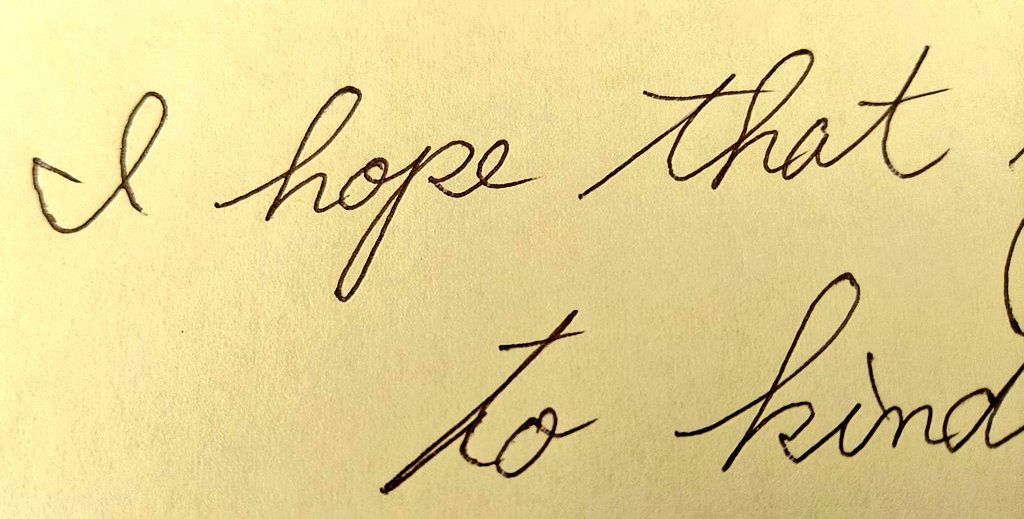 I hope that
to kind